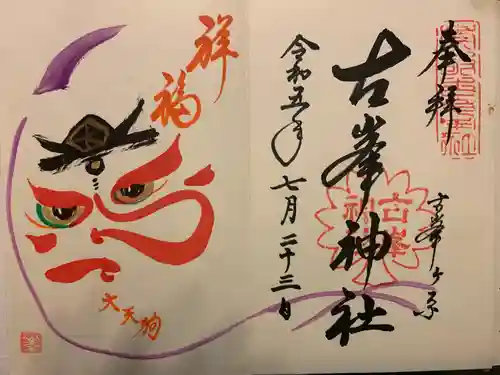 奉拝
古峯ヶ原
古峯神社
令和五年
七月二十三日
祥福
大天狗
古峯
神社